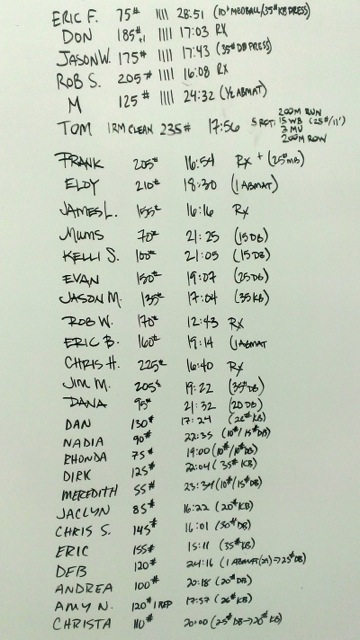 ERIC F. 75# |||| 28:51 (10# MEDBALL/35# KB PRESS)
DON 185# |||| 17:03 RX
JASON W. 175# |||| 17:43 (35# DB PRESS)
ROB S. 205# |||| 16:08 RX
M 125# |||| 24:32 (1/2 ABMAT)
TOM 1RM CLEAN 235# 17:56 5 RFT: 200M RUN
15 WB (25#/11')
3 MU
200M ROW
FRANK 205# 16:54 RX + (25# MB)
ELDY 210# 18:30 (1 ABMAT)
JAMES L. 155# 16:16 RX
MUMS 70# 21:25 (15 DB)
KELLI S. 100# 21:05 (15 DB)
EVAN 150# 19:07 (25 DB)
JASON M. 135# 17:04 (35 KB)
ROB W. 170# 12:43 RX
ERIC B. 160# 19:14 (1 ABMAT
CHRIS H. 225# 16:40 RX
JIM M. 205# 19:22 (35# DB)
DANA 95# 21:32 (20 DB)
DAN 130# 17:24 (26# KB)
NADIA 90# 22:35 (10#/15# DB)
RHONDA 75# 19:00 (10#/10# DB)
DIRK 125# 22:04 (35# KB)
MEREDITH 55# 23:34 (10#/15# DB)
JACLYN 85# 16:22 (20# KB)
CHRIS S. 145# 16:01 (30# DB)
ERIC 155# 15:11 (35# KB)
DEB 120# 24:16 (1 ABMAT(21)→25# DB)
ANDREA 100# 20:18 (20# DB)
AMY N. 120# 1 REP 17:57 (26# KB)
CHRISTA 110# 20:00 (25# DB→26# KB)